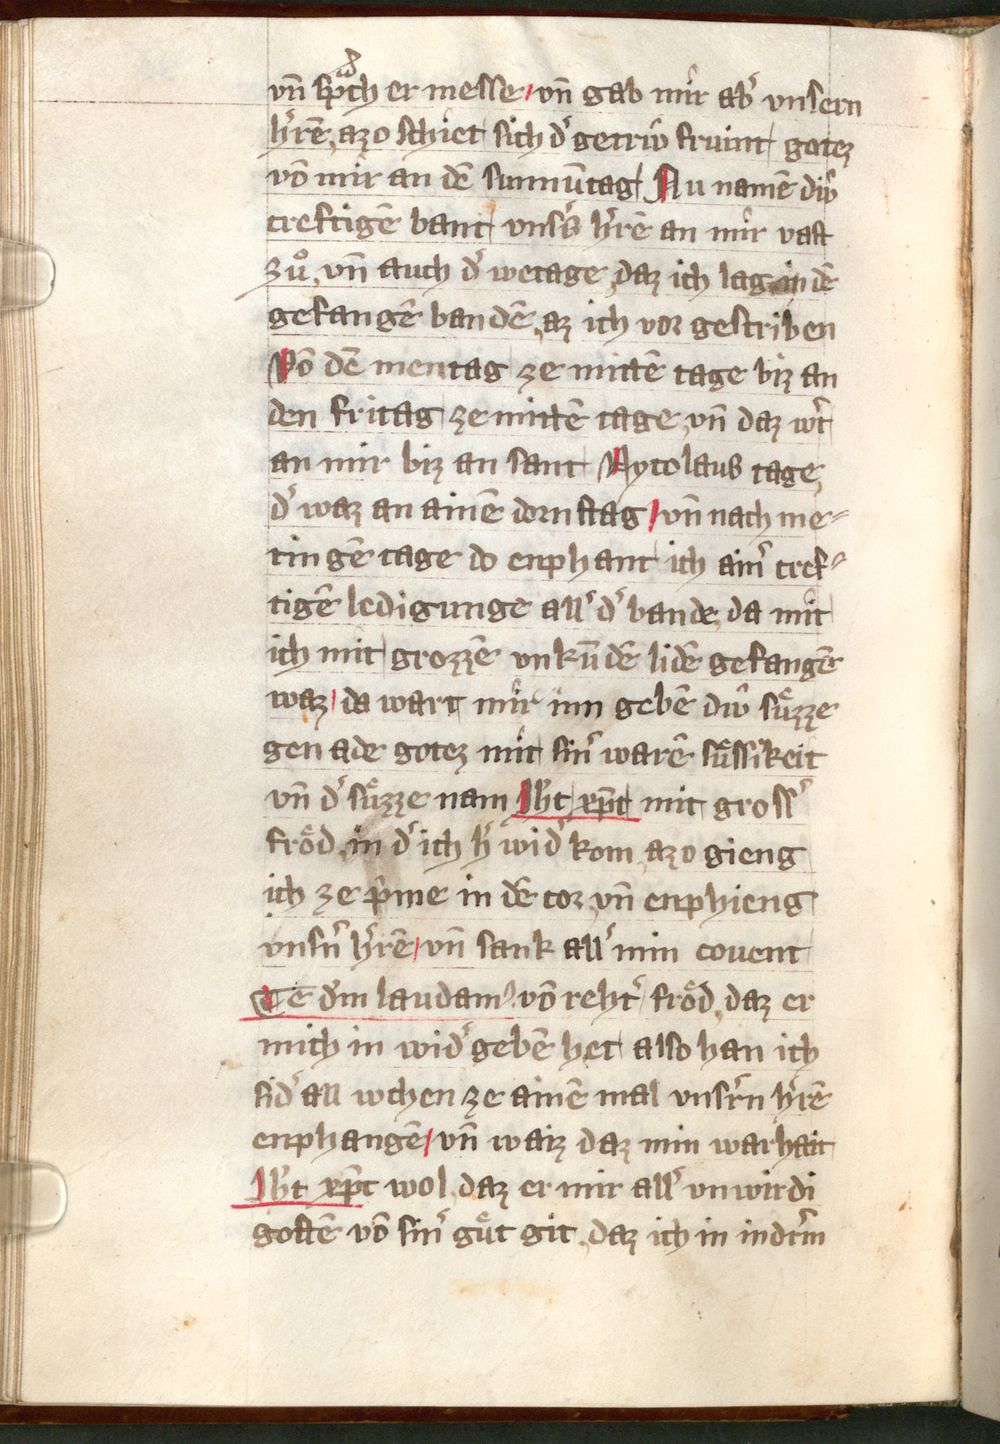 vn̄ sprͣch er messe / vn̄ gab mir abˀ vnsern
hˀrē, azo schiet sich dˀ getriẘ frúint gotez
vō mir an dē sunnūtag Nu namē diẘ
creftigē bant vnsˀs hˀrē an mir vast
zů, vn̄ auch dˀ wetage, daz ich lag in dē
gefangē bandē, az ich vor gescriben
Vō dē mentag ze mittē tage biz an
den fritag ze mittē tage, vn̄ daz wˀt
an mir biz an sant Nycolaus tage,
dˀ waz an ainē dornstag / vn̄ nach me⸗
tin gē tage do enphant ich ainˀ cref⸗
tigē ledigunge allˀ dˀ bande, da mit
ich mit grozzē vnkūdē lidē gefangē
waz / da wart mir inn gebē diẘ sűzze
gen ade gotez mit sinˀ warē sűssikeit
vn̄ dˀ sűzze nam Jhc xp̄c mit grossˀ
frőd, in dˀ ich hˀ widˀ kom, azo gieng
ich ze p̄me in dē cor, vn̄ enphieng
vnsn̄ hˀrē / vn̄ sank allˀ min couent
TE dm̄ laudamꝰ. vō rehtˀ frőd, daz er
mich in widˀ gebē het also han ich
sidˀ all wchen ze ainē mal vnsrˀn hˀrē
enphangē / vn̄ waiz daz min warhait
Jhc xp̄c wol, daz er mir allˀ vnwirdi
gostē vō sinˀ gűt git, daz ich in indrˀm